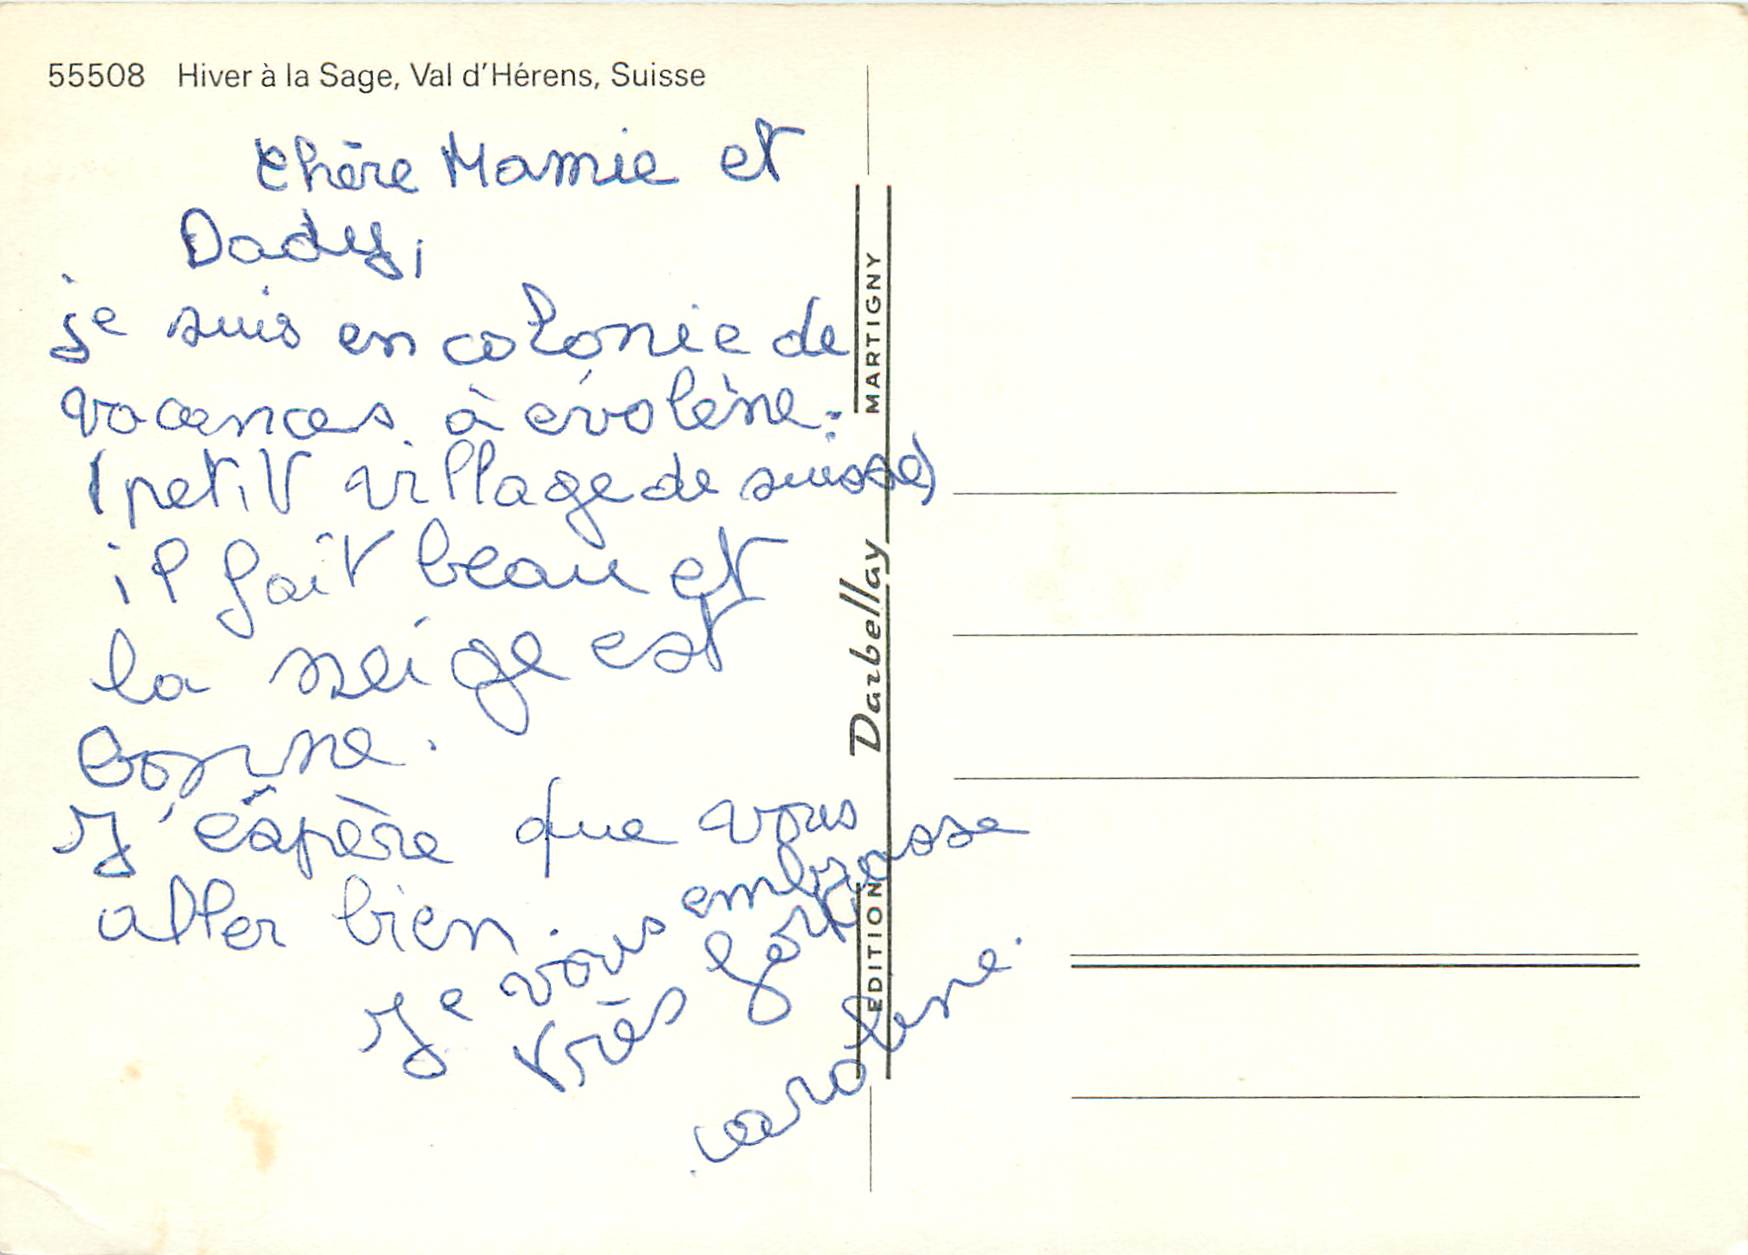 55508 Hiver à la Sage, Val d'Hérens, Suisse
Chère Mamie et
Dady,
je suis en colonie de
vacances à évolène.
(petit village de suisse)
il fait beau et
la neige est
bonne.
J'éspère que vous
aller bien.
Je vous embrasse
très fort
caroline.
EDITION Darbellay MARTIGNY